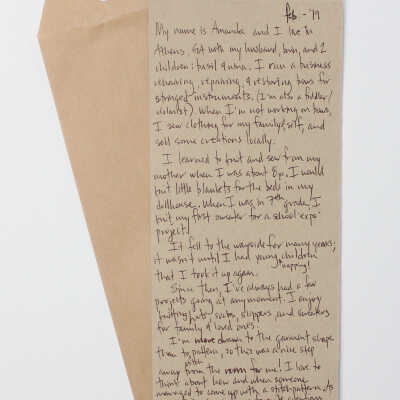 Feb - '19
My name is Amanda and I live in
Athens, GA with my husband, and 2
children: & . I run a business
rehairing, repairing, & restoring bows for
stringed instruments. (I'm also a fiddler/
violinist). When I'm not working on bows,
I sew clothing for my family & self, and
sell some creations locally.
I learned to knit and sew from my
mother when I was about 8yo. I would
knit little blankets for the beds in my
dollhouse. When I was in 7th grade, I
knit my first sweater for a school "expo"
project.
It fell to the wayside for many years;
it wasn't until I had young children
napping!
that I took it up again.
Since then, I've always had a few
projects going at any moment. I enjoy
knitting hats, socks, slippers and sweaters
for family & loved ones.
I'm more drawn to the garment shape
than to pattern, so this was a nice step
away from the norm for me! I love to
think about how and when someone
managed to come up with a stitch pattern. Its